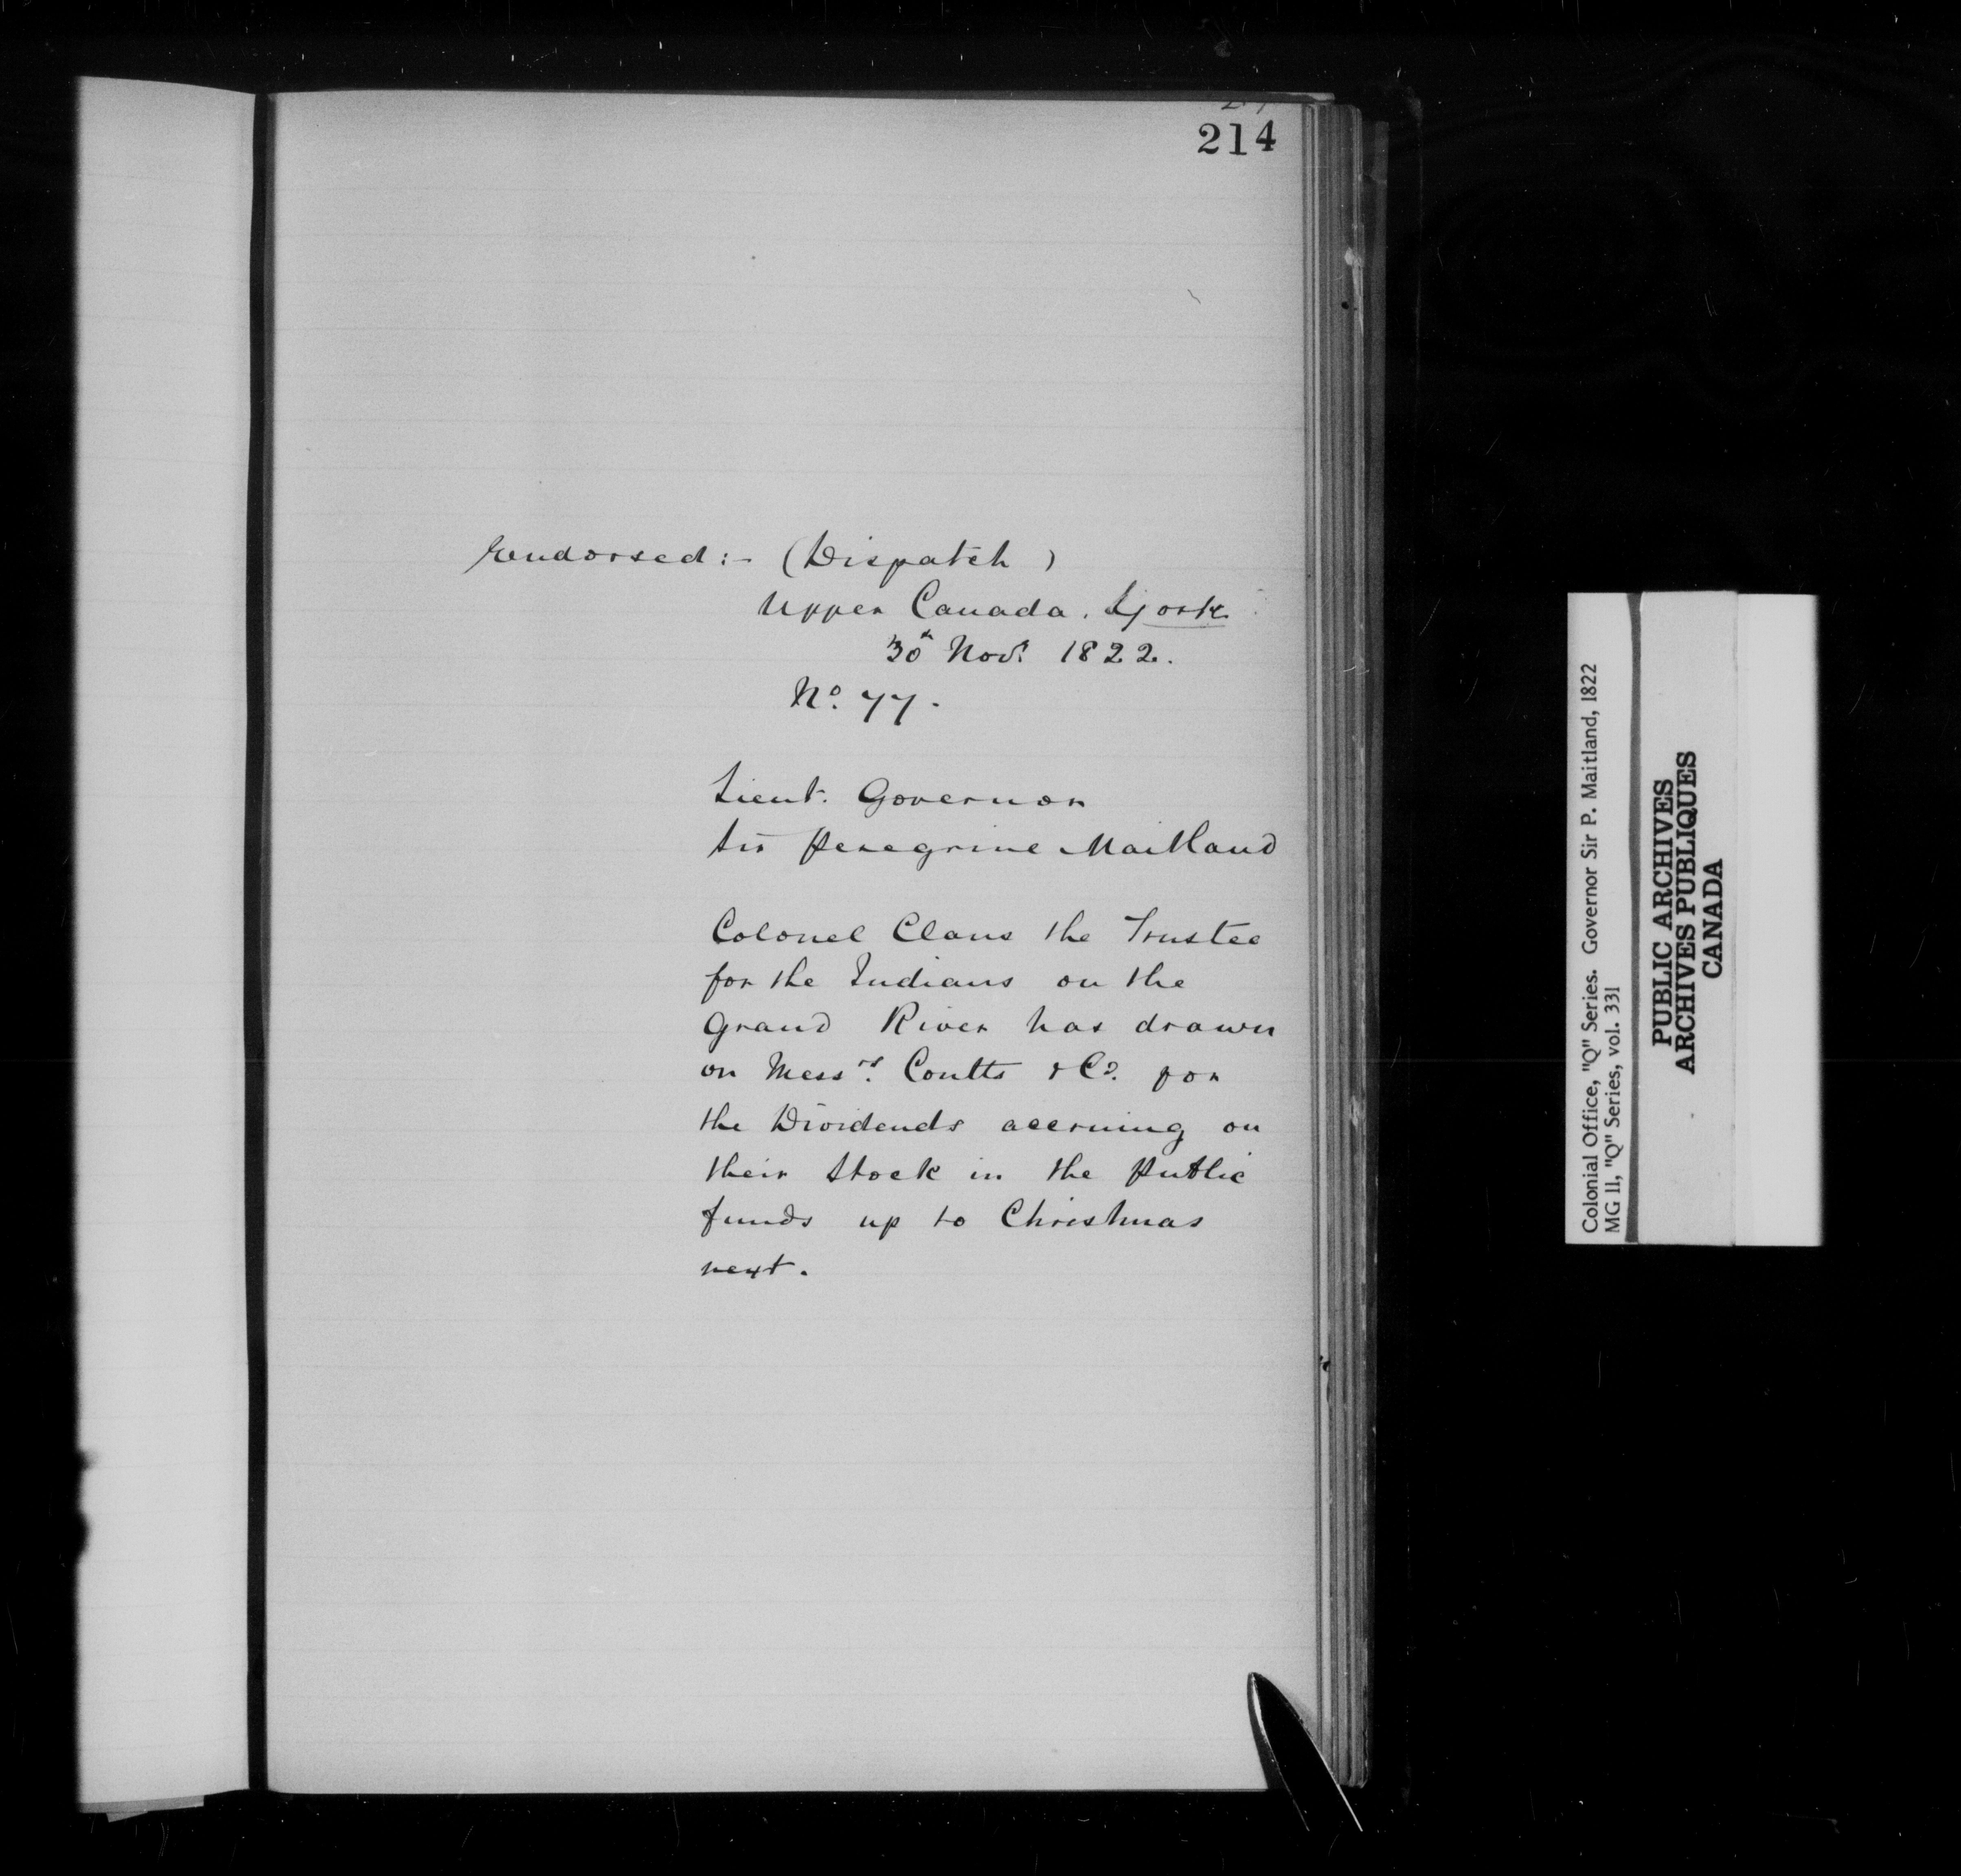 214
Endorsed:- (Dispatch)
Upper Canada. York
30th Novr. 1822.
No. 77.
Lieut. Governor
Sir Peregrine Maitland
Colonel Claus the Trustee
for the Indians on the
Grand River has drawn
on Messrs. Coutts & Co. for
the Dividends accruing on
their Stock in the Public
funds up to Christmas
next.
Colonial Office, "Q" Series. Governor Sir P. Maitland, 1822
MG 11, "Q" Series, vol. 331
PUBLIC ARCHIVES
ARCHIVES PUBLIQUES
CANADA